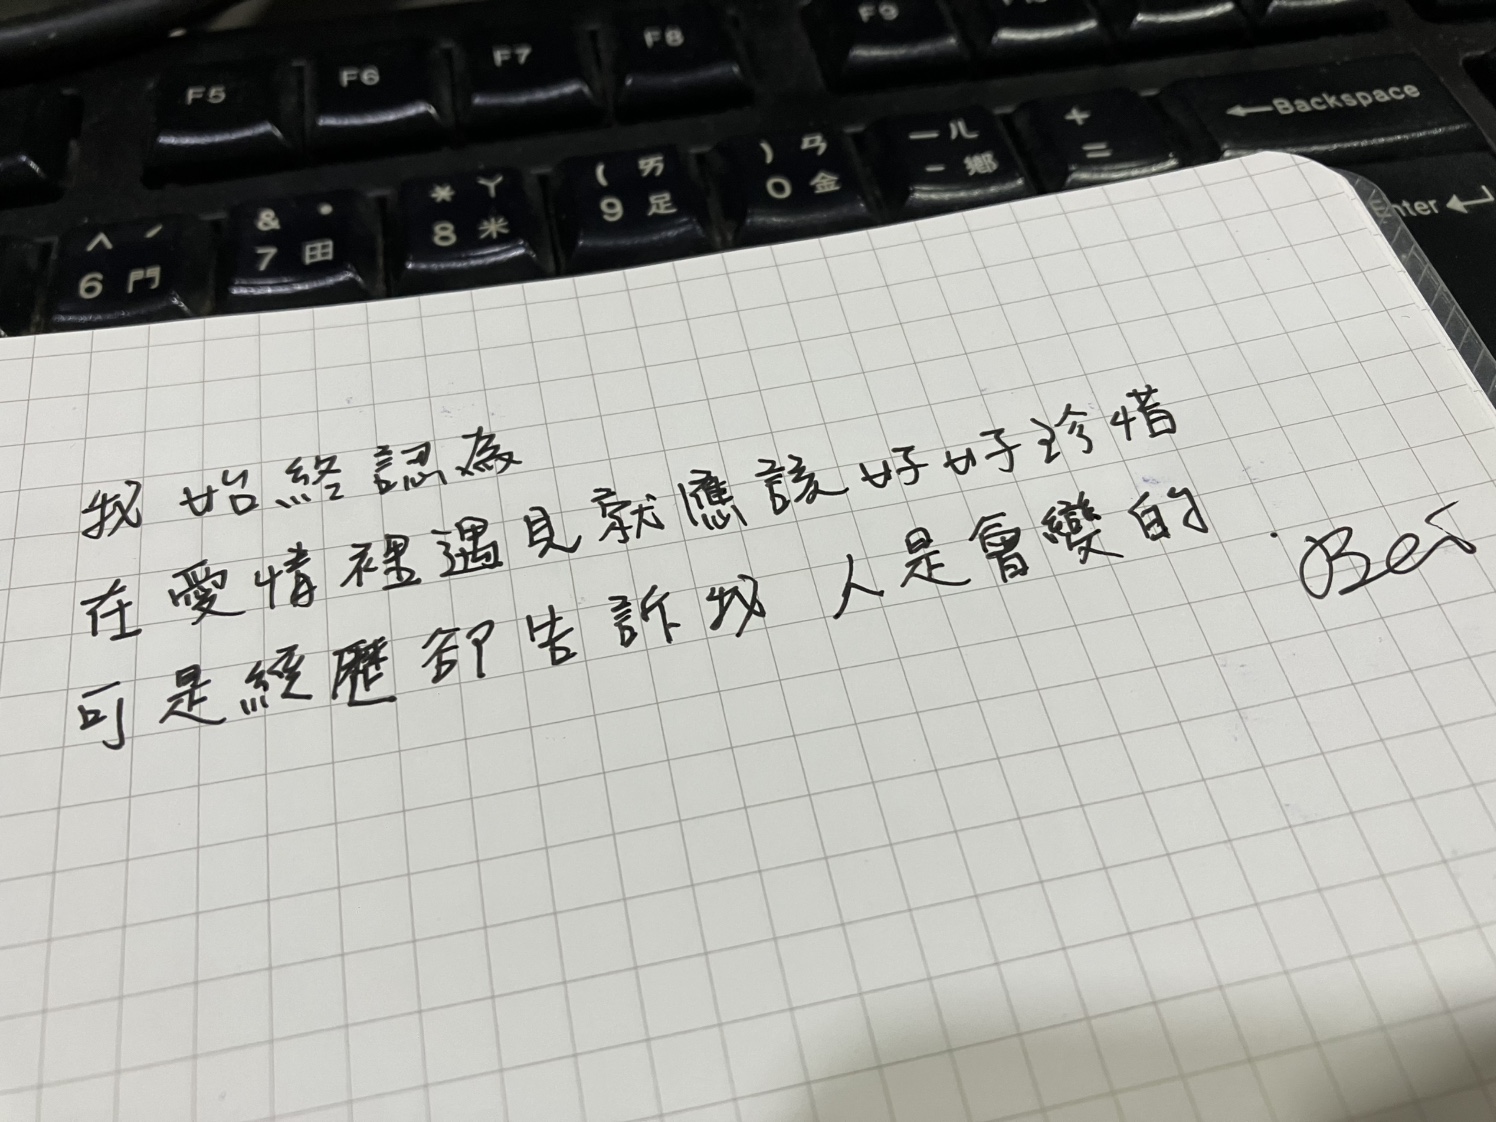 F5 F6 F7 F8 F9
^ ˊ & ˙ * ㄚ ( ㄞ ) ㄢ — ㄦ + ←Backspace
6 門 7 田 8 米 9 足 0 金 - 鄉 = Enter
我始終認為
在愛情裡遇見就應該好好珍惜
可是經歷卻告訴我 人是會變的.